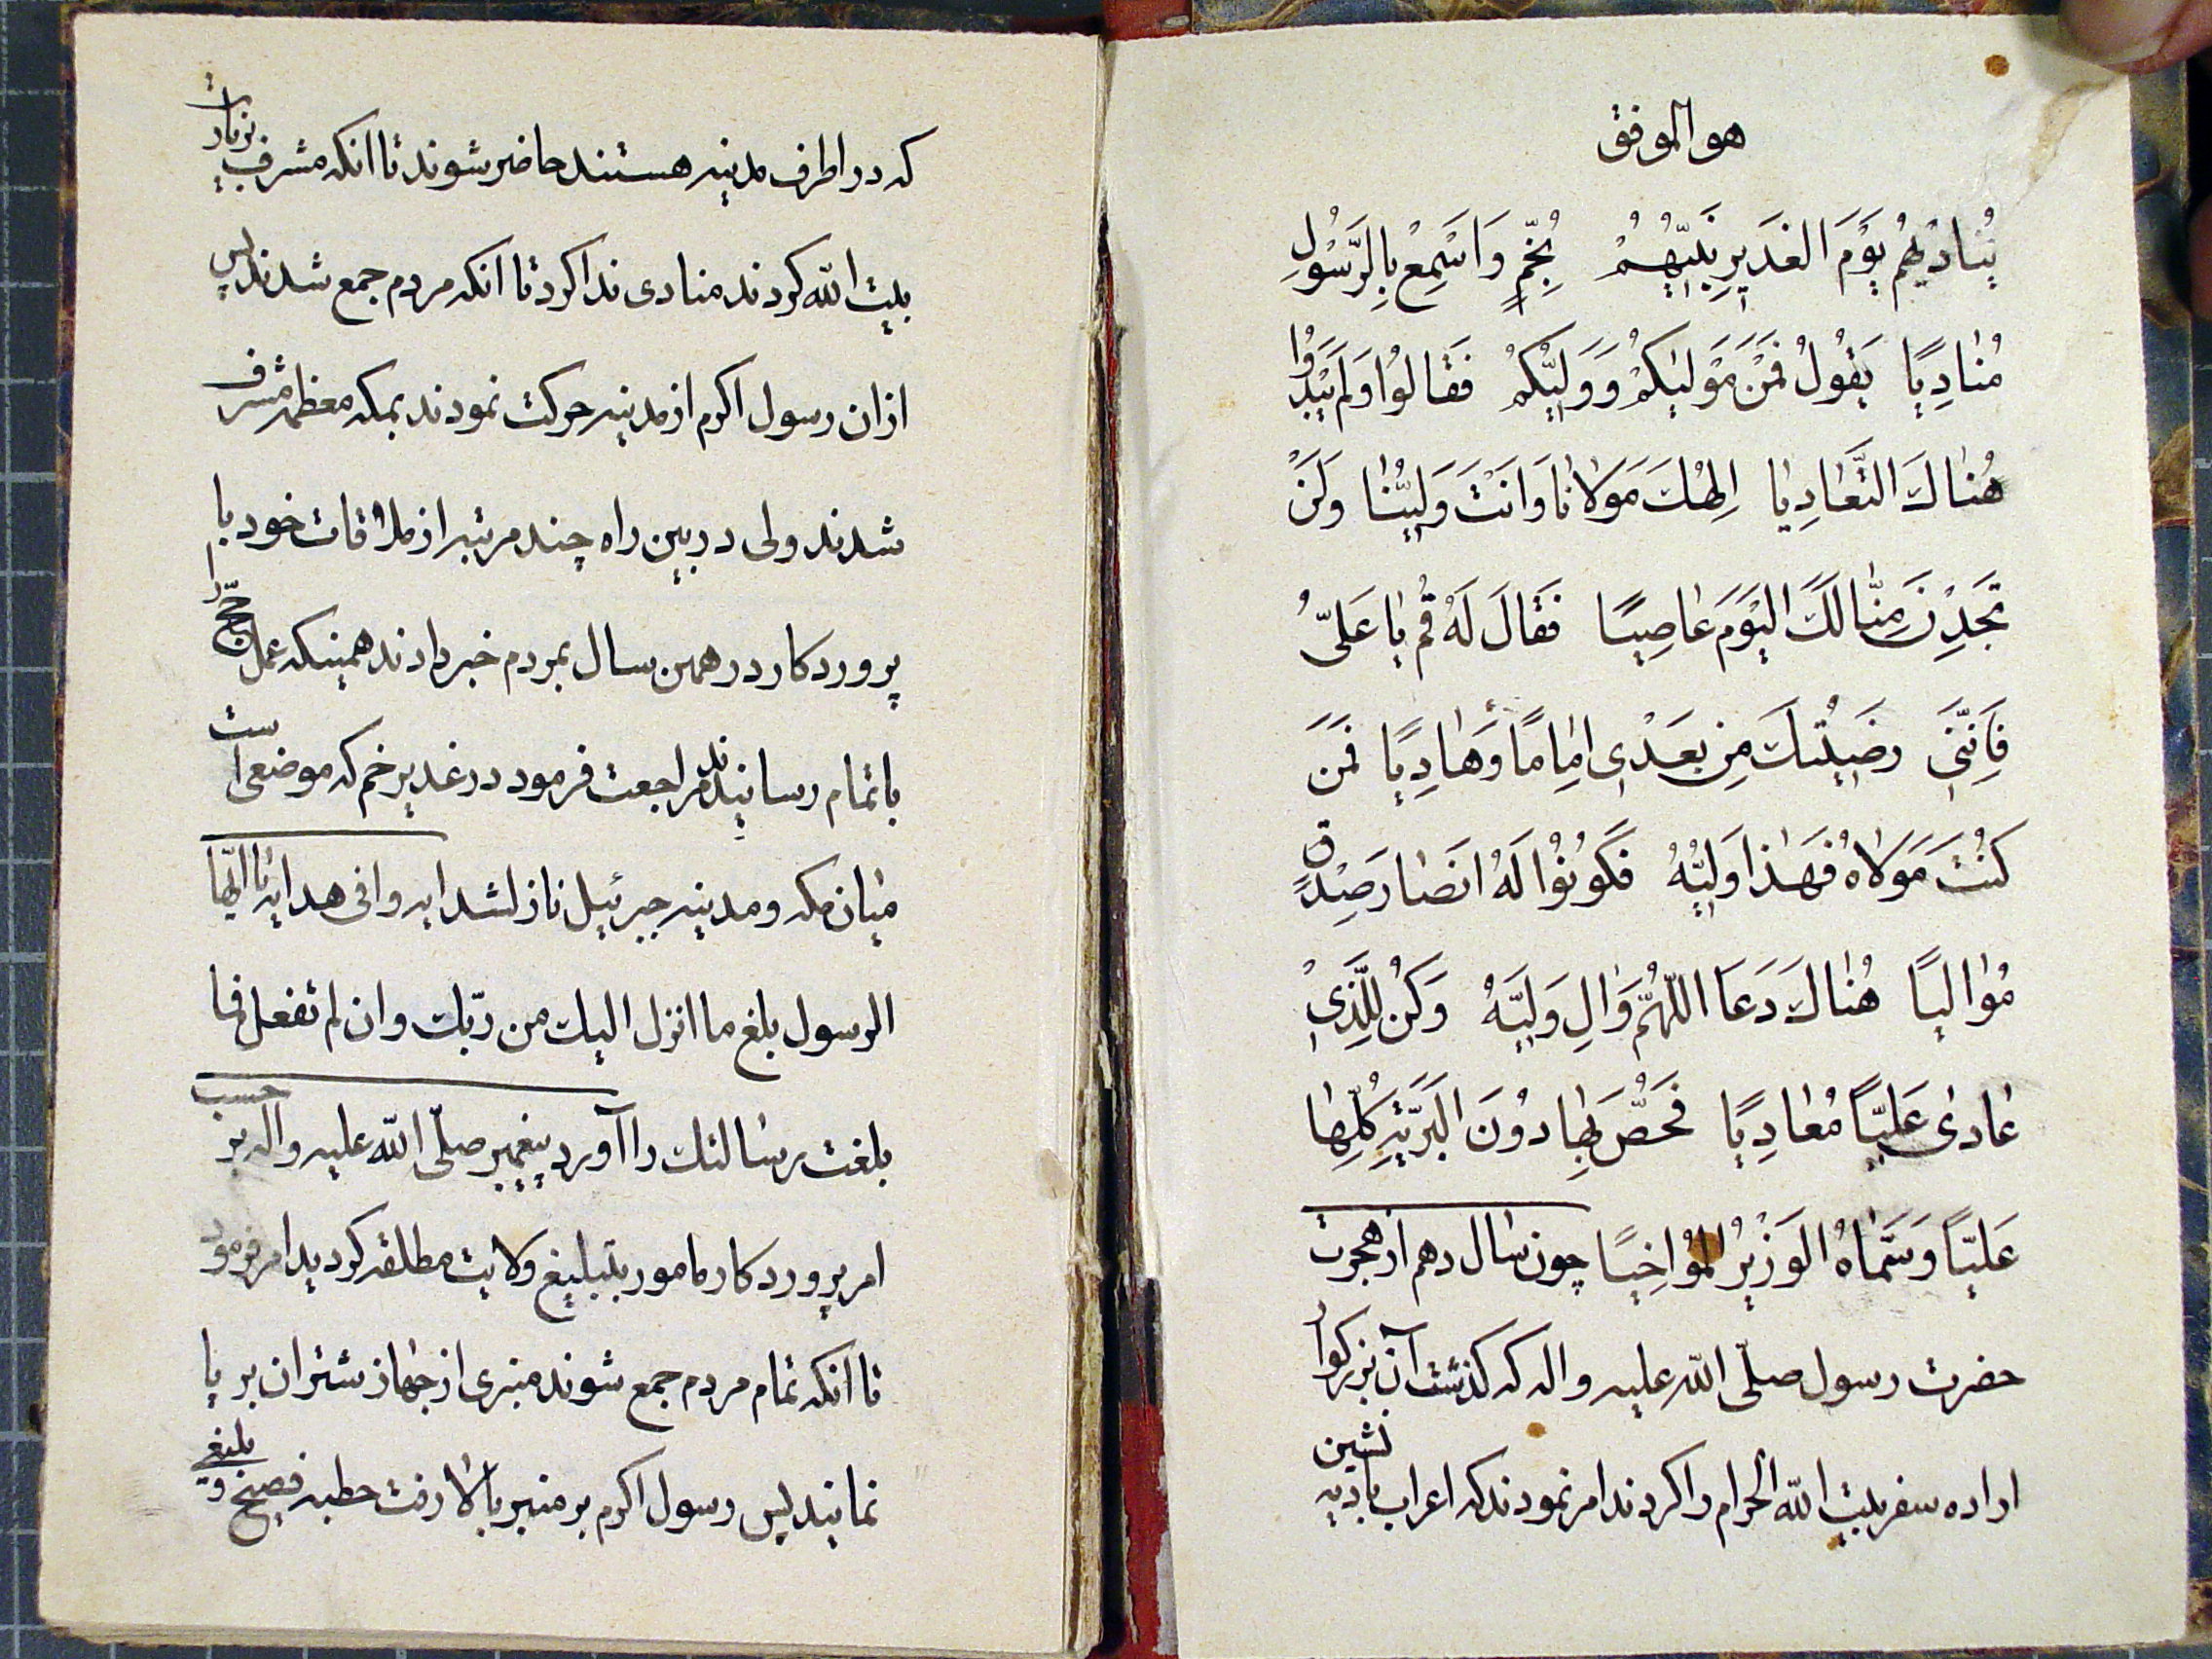 هو الموفق
يُنادِيهُمُ يَوْمَ الغَدَيرِ نَبِيُّهُمْ بِخُمٍّ وَاَسْمِعْ بِالرَّسُولِ
مُنادِيًا يَقُولُ فَمَنْ مَوْلیٰكُمْ وَوَلِيُّكُمْ فَقالُوا وَلَمْ يَبْدُوا
هُناكَ التَّعادِيا اِلهُكَ مَوْلانا وَاَنْتَ وَلِيُّنا وَلَنْ
تَجِدَنَّ مِنّا لَكَ اليَوْمَ عاصِيًا فَقالَ لَهُ قُمْ يا عَلىُّ
فَاِنَّنى رَضِيتُكَ مِن بَعْدى اِمامًا وَهادِيًا فَمَنْ
كُنْتُ مَوْلاهُ فَهذا وَلِيُّهُ فَكُونُوا لَهُ انَصارَ صِدْقٍ
مُوالِيًا هُناكَ دَعَا اللّهُمَّ وَالِ وَلِيَّهُ وَكُنْ لِلَّذِى
عادى عَلِيًّا مُعادِيًا فَخَصَّ بِها دُونَ البَرِيَّةِ كُلِّها
عَلِيًّا وَسَمّاهُ الوَزيرُ المُواخِيًا چون سال دهم از هجرت
حضرت رسول صلّى اللّه عليه واله كه كذشت آن بزركوار
اراده سفر بيت اللّه الحرام را كردند امر نمودند كه اعراب باديه نشين
كه در اطرف مدينه هستند حاضر شوند تا انكه مشرف بزيارت
بيت اللّه كردند منادى ندا كرد تا انكه مردم جمع شدند پس
ازان رسول اكرم از مدينه حركت نمودند بمكه معظمه مشرف
شدند ولى در بين راه چند مرتبه از ملاقات خود با
پروردكار در همين سال بمردم خبر دادند همينكه عمل حجّ را
باتمام رسانيدند مراجعت فرمود در غدير خم كه موضعى است
ميان مكه ومدينه جبرئيل نازلشد ايه وافى هدايه يا ايّها
الرسول بلغ ما انزل اليك من ربّك وان لم تفعل فما
بلغت رسالتك را آورد پيغمبر صلّى اللّه عليه واله بر حسب
امر پروردكار مامور بتبليغ ولايت مطلقه كرديد امر فرمود
تا انكه تمام مردم جمع شوند منبرى از جهاز شتران بر پا
نمايند پس رسول اكرم بر منبر بالا رفت خطبه فصيح و بليغى